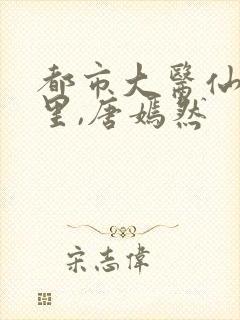 都市大醫仙
里,唐嫣然
宋志偉